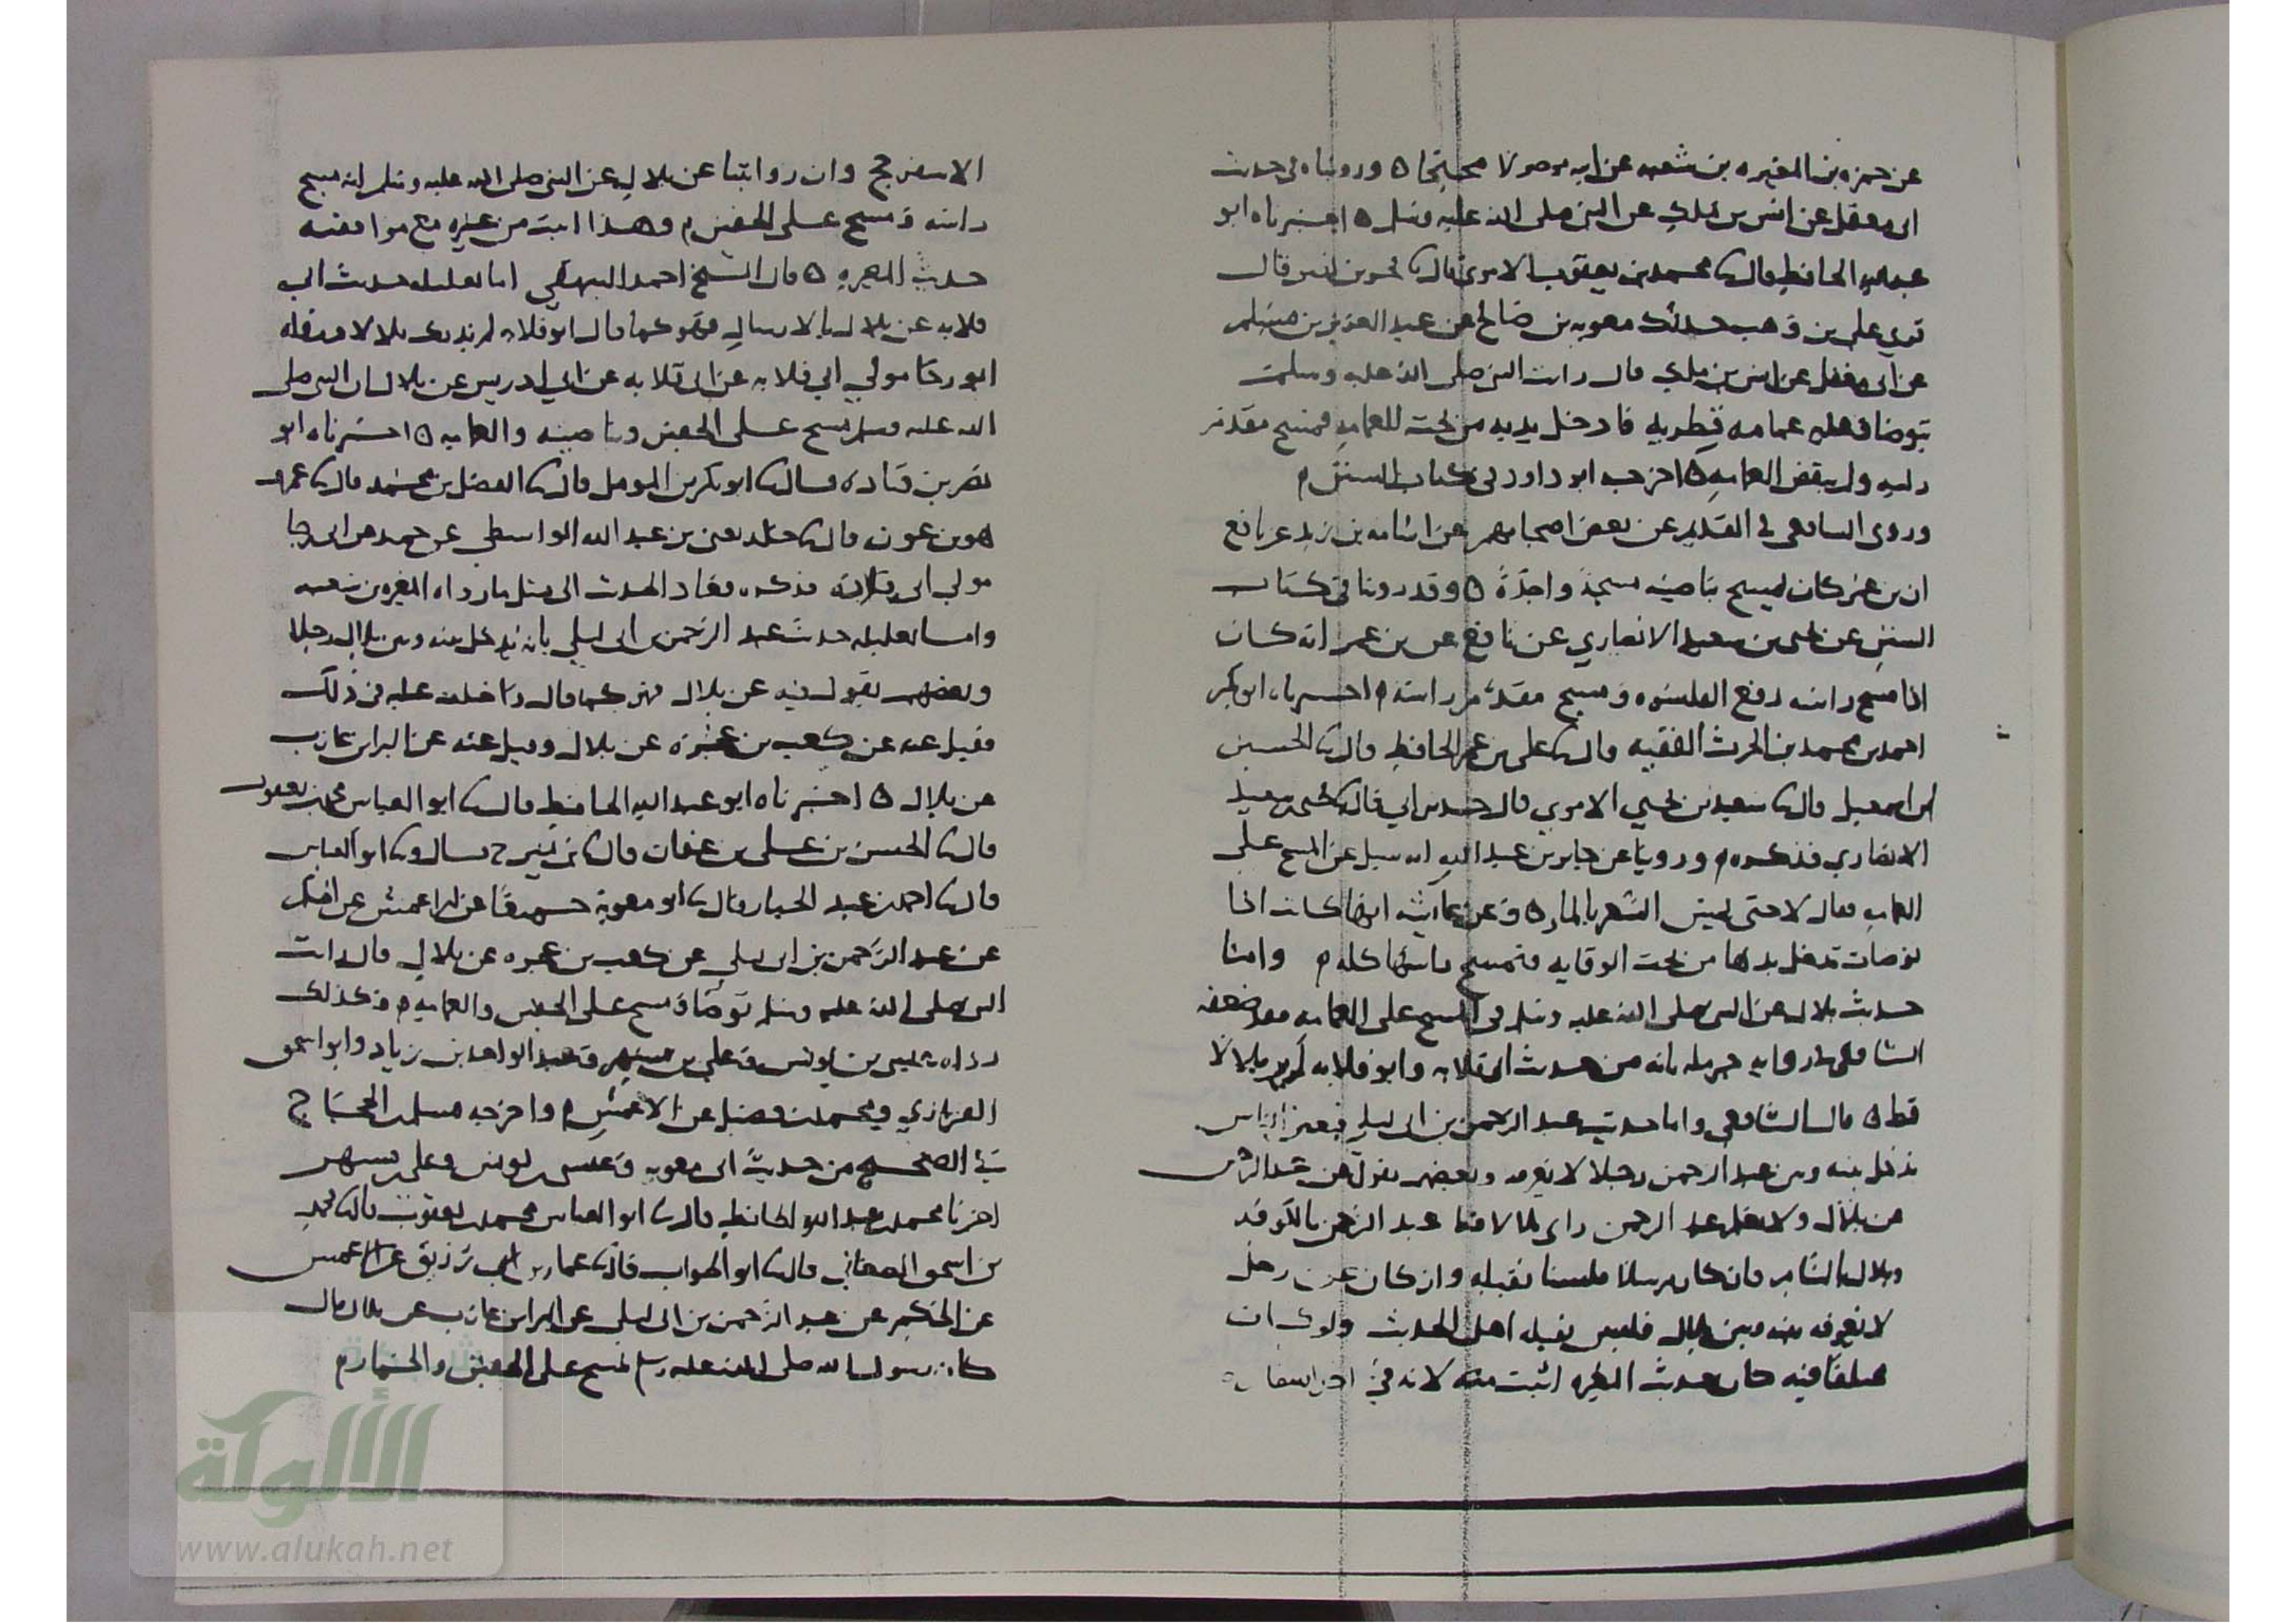 عن حمزه بن المغيره بن شعبه عن ابيه موصولا محتجا ه ورويناه في حديث
ابي معقل عن انس بن ملك عن النبي صلى الله عليه وسلم ه اخبرناه ابو
عبدالله الحافظ قال ثنا محمد بن يعقوب الاموي قال ثنا بحر بن نصر قال
قري علي بن وهب حدثك معويه بن صالح عن عبد العزيز بن مسلم
عن ابي معقل عن انس بن ملك قال رايت النبي صلى الله عليه وسلم
يتوضا وعليه عمامه قطريه فادخل يديه من تحت العمامه فمسح مقدم
راسه ولم ينقض العمامه ه اخرجه ابو داود في كتاب السنن م
وروى الشافعي في القديم عن بعض اصحابهم عن اسامه بن زيد عن نافع
ان بن عمر كان يمسح بناصيته مسحة واحدة ه وقد روينا في كتاب
السنن عن يحيى بن سعيد الانصاري عن نافع عن بن عمر انه كان
اذا مسح راسه رفع القلنسوه ومسح مقدم راسه م اخبرناه ابو بكر
احمد بن محمد بن الحرث الفقيه قال ثنا علي بن عمر الحافظ قال ثنا الحسين
بن اسمعيل قال ثنا سعيد بن يحيي الاموي قال حدثني ابي قال ثنا يحيى بن سعيد
الانصاري فذكره م وروينا عن جابر بن عبد الله انه سيل عن المسح على
العمامه فقال لا حتى يمس الشعر بالماء ه وعن عائشه انها كانت اذا
توضات تدخل يدها من تحت الوقايه فتمسح براسها كله م وامنا
حديث بلال عن النبي صلى الله عليه وسلم في المسح على العمامه فقد ضعفه
الشافعي في روايه حرمله بانه من حديث ابي قلابه وابو قلابه لم ير بلالا
قط ه قال الشافعي واما حديث عبد الرحمن بن ابي ليلى فبعض الناس
يدخل بينه وبين عبد الرحمن رجلا لا نعرفه وبعضهم يقول عن عبد الرحمن
عن بلال ولا نعلم عبد الرحمن راى بلالا قط عبد الرحمن بالكوفه
وبلال بالشام فان كان مرسلا فلسنا نقبله وان كان عن رجل
لا نعرفه بينه وبين بلال فليس يقبله اهل الحديث ولو كان
مختلفا فيه كان حديث المغيره اثبت منه لانه في
الاسفر حج وان روايتنا عن بلال عن النبي صلى الله عليه وسلم انه مسح
راسه ومسح على الخفين م وهذا اثبت من غيره مع موافقته
حديث المغيره ه قال الشيخ احمد البيهقي اما تعليله حديث ابي
قلابه عن بلال بالارسال فهو كما قال ابو قلابه لم يدرك بلالا ورواه
ابو رجا مولي ابي قلابه عن ابي قلابه عن ابي ادريس عن بلال ان النبي صلى
الله عليه وسلم مسح على الخفين وناصيته والعمامه ه اخبرناه ابو
نصر بن قتاده قال ثنا ابو بكر بن المومل قال ثنا الفضل بن محمد قال ثنا عمرو
هو بن عون قال ثنا خالد يعني بن عبد الله الواسطي عن حميد عن ابي رجا
مولي ابي قلابه فذكره فعاد الحديث الى مثل ما رواه المغيره بن شعبه
واما تعليله حديث عبد الرحمن بن ابي ليلي بان يدخل بينه وبين بلال رجلا
وبعضهم يقول فيه عن بلال فهو كما قال واختلف عليه في ذلك
فقيل عنه عن كعب بن عجره عن بلال وقيل عنه عن البراء بن عازب
عن بلال ه اخبرناه ابو عبد الله الحافظ قال ثنا ابو العباس محمد بن يعقوب
قال ثنا الحسن بن على بن عفان قال ثنا بن نمير ح قال وثنا ابو العباس
قال ثنا احمد بن عبد الجبار قال ثنا ابو معوية جميعا عن الاعمش عن الحكم
عن عبد الرحمن بن ابي ليلي عن كعب بن عجره عن بلال قال رايت
النبي صلى الله عليه وسلم توضا ومسح على الخفين والعمامه م وكذلك
رواه عيسى بن يونس وعلي بن مسهر وعبد الواحد بن زياد وابو اسحق
الفزاري ومحمد بن فضيل عن الاعمش م واخرجه مسلم بن الحجاج
في الصحيح من حديث ابي معويه وعيسى بن يونس وعلي بن مسهر
اخبرنا محمد بن عبد الله الحافظ قال ثنا ابو العباس محمد بن يعقوب قال ثنا محمد
بن اسحق الصغاني قال ثنا ابو الجواب قال ثنا عمار بن رزيق عن الاعمش
عن الحكم عن عبد الرحمن بن ابي ليلي عن البراء بن عازب عن بلال قال
كان رسول الله صلى الله عليه وسلم يمسح على الخفين والخمار م
شبكة
الألوكة
www.alukah.net